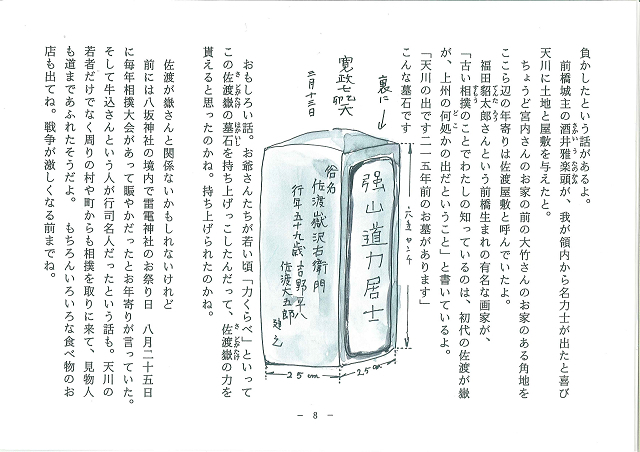 負かしたという話があるよ。
前橋城主の酒井雅楽頭が、我が領内から名力士が出たと喜び
天川に土地と屋敷を与えたと。
ちょうど宮内さんのお家の前の大竹さんのお家のある角地を
ここら辺の年寄りは佐渡屋敷と呼んでいたよ。
福田貂太郎さんという前橋生まれの有名な画家が、
「古い相撲のことでわたしの知っているのは、初代の佐渡が嶽
が、上州の何処かの出だということ」と書いているよ。
「天川の出です二一五年前のお墓があります」
こんな墓石です
裏に→
寛政七乙卯天
二月十三日
強山道力居士
俗名
佐渡嶽沢右衛門
行年五十九歳
吉野平八
佐渡大五郎
建之
25cm
25cm
おもしろい話。お爺さんたちが若い頃「力くらべ」といって
この佐渡嶽の墓石を持ち上げっこしたんだって、佐渡が嶽の力を
貰えると思ったのかね。持ち上げられたのかね。
佐渡が嶽さんと関係ないかもしれないけれど
前には八坂神社の境内で雷電神社のお祭り日 八月二十五日
に毎年相撲大会があって賑やかだったとお年寄りが言っていた。
そして牛込さんという人が行司名人だったという話も。天川の
若者だけでなく周りの村や町からも相撲を取りに来て、見物人
も道まであふれたそうだよ。 もちろんいろいろな食べ物のお
店も出てね。戦争が激しくなる前までね。
- 8 -